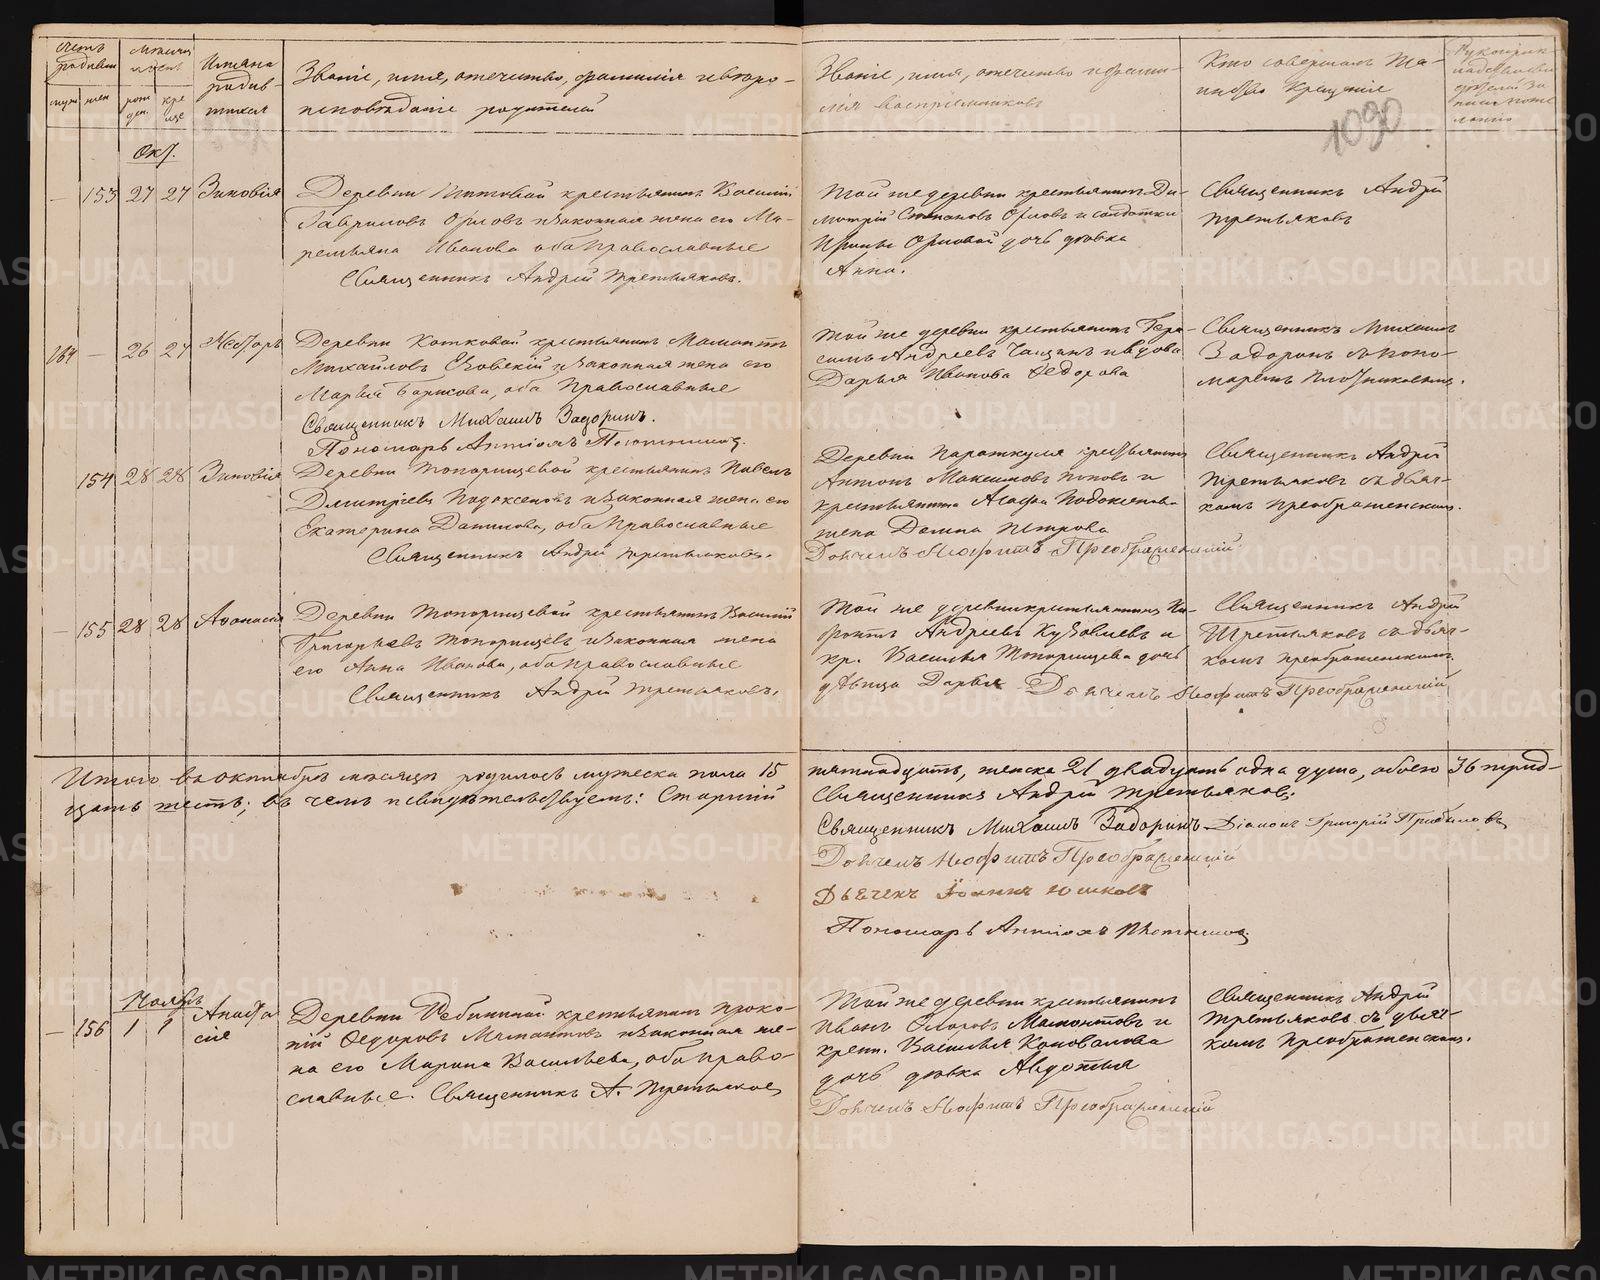 Счетъ родивш.
муж. жен.
Мѣсяцъ и день
рожден. креще
Имяна родившихся
Званіе, имя, отечество, фамилія и вѣро-
исповѣданіе родителей
Званіе, имя, отечество и фами-
лія воспріемниковъ
Кто совершалъ Та-
инство Крещенія
1090
Окт.
153 27 27 Зиновія
Деревни крестьянинъ Василій
Гавриловъ Орловъ и законная жена его Ма-
ремьяна Иванова оба православные
Священникъ Андрій Третьяковъ.
Той же деревни крестьянинъ Ди-
митрій Степановъ Орловъ и солдатки
Ирины Орловой дочь дѣвка
Анна.
Священникъ Андрій
Третьяковъ
26 27 Несторъ
Деревни Котковой крестьянинъ Мамонтъ
Михайловъ и законная жена его
Марья Борисова, оба Православные
Священникъ Михаилъ Задоринъ.
Пономарь Антіохъ Плотниковъ.
Той же деревни крестьянинъ Гера-
симъ Андреевъ и вдова
Дарья Иванова Федорова
Священникъ Михаилъ
Задоринъ съ поно-
маремъ Плотниковымъ.
154 28 28 Зиновія
Деревни Топорищевой крестьянинъ Павелъ
Димитріевъ Подоксеновъ и законная жена его
Екатерина Данилова, оба Православные
Священникъ Андрій Третьяковъ.
Деревни Параткуля крестьянинъ
Антонъ Максимовъ Поповъ и
крестьянина Агафона Подоксенова
жена Домна Петрова
Дьячекъ Неофитъ Преображенскій
Священникъ Андрій
Третьяковъ съ дьяч-
комъ Преображенскимъ.
155 28 28 Афанасія
Деревни Топорищевой крестьянинъ Василій
Григорьевъ Топорищевъ и законная жена
его Анна Иванова, оба православные
Священникъ Андрій Третьяковъ.
Той же деревни крестьянинъ
Андреевъ и
кр. Василья Топорищева дочь
дѣвица Дарья Дьячекъ Неофитъ Преображенскій
Священникъ Андрій
Третьяковъ съ дьяч-
комъ Преображенскимъ.
Итого въ октябрѣ мѣсяцѣ родилось мужеска пола 15 пятнадцать, женска 21 двадцать одна душа, обоего 36 трид-
цать шесть; въ чемъ и свидѣтельствуемъ: Старшій Священникъ Андрій Третьяковъ.
Священникъ Михаилъ Задоринъ Діаконъ Григорій Прибыловъ
Дьячекъ Неофитъ Преображенскій
Дьячекъ Іоаннъ Юшковъ
Пономарь Антіохъ Плотниковъ
Ноябрь
156 1 1 Анаста
сія
Деревни крестьянинъ Проко-
пій Федоровъ Мамонтовъ и законная же-
на его Марина Васильева, оба право-
славные. Священникъ А. Третьяковъ
Той же деревни крестьянинъ
Иванъ Федоровъ Мамонтовъ и
крест. Василья Коновалова
дочь дѣвка Авдотья
Дьячекъ Неофитъ Преображенскій
Священникъ Андрій
Третьяковъ съ дьяч-
комъ Преображенскимъ.
METRIKI.GASO-URAL.RU